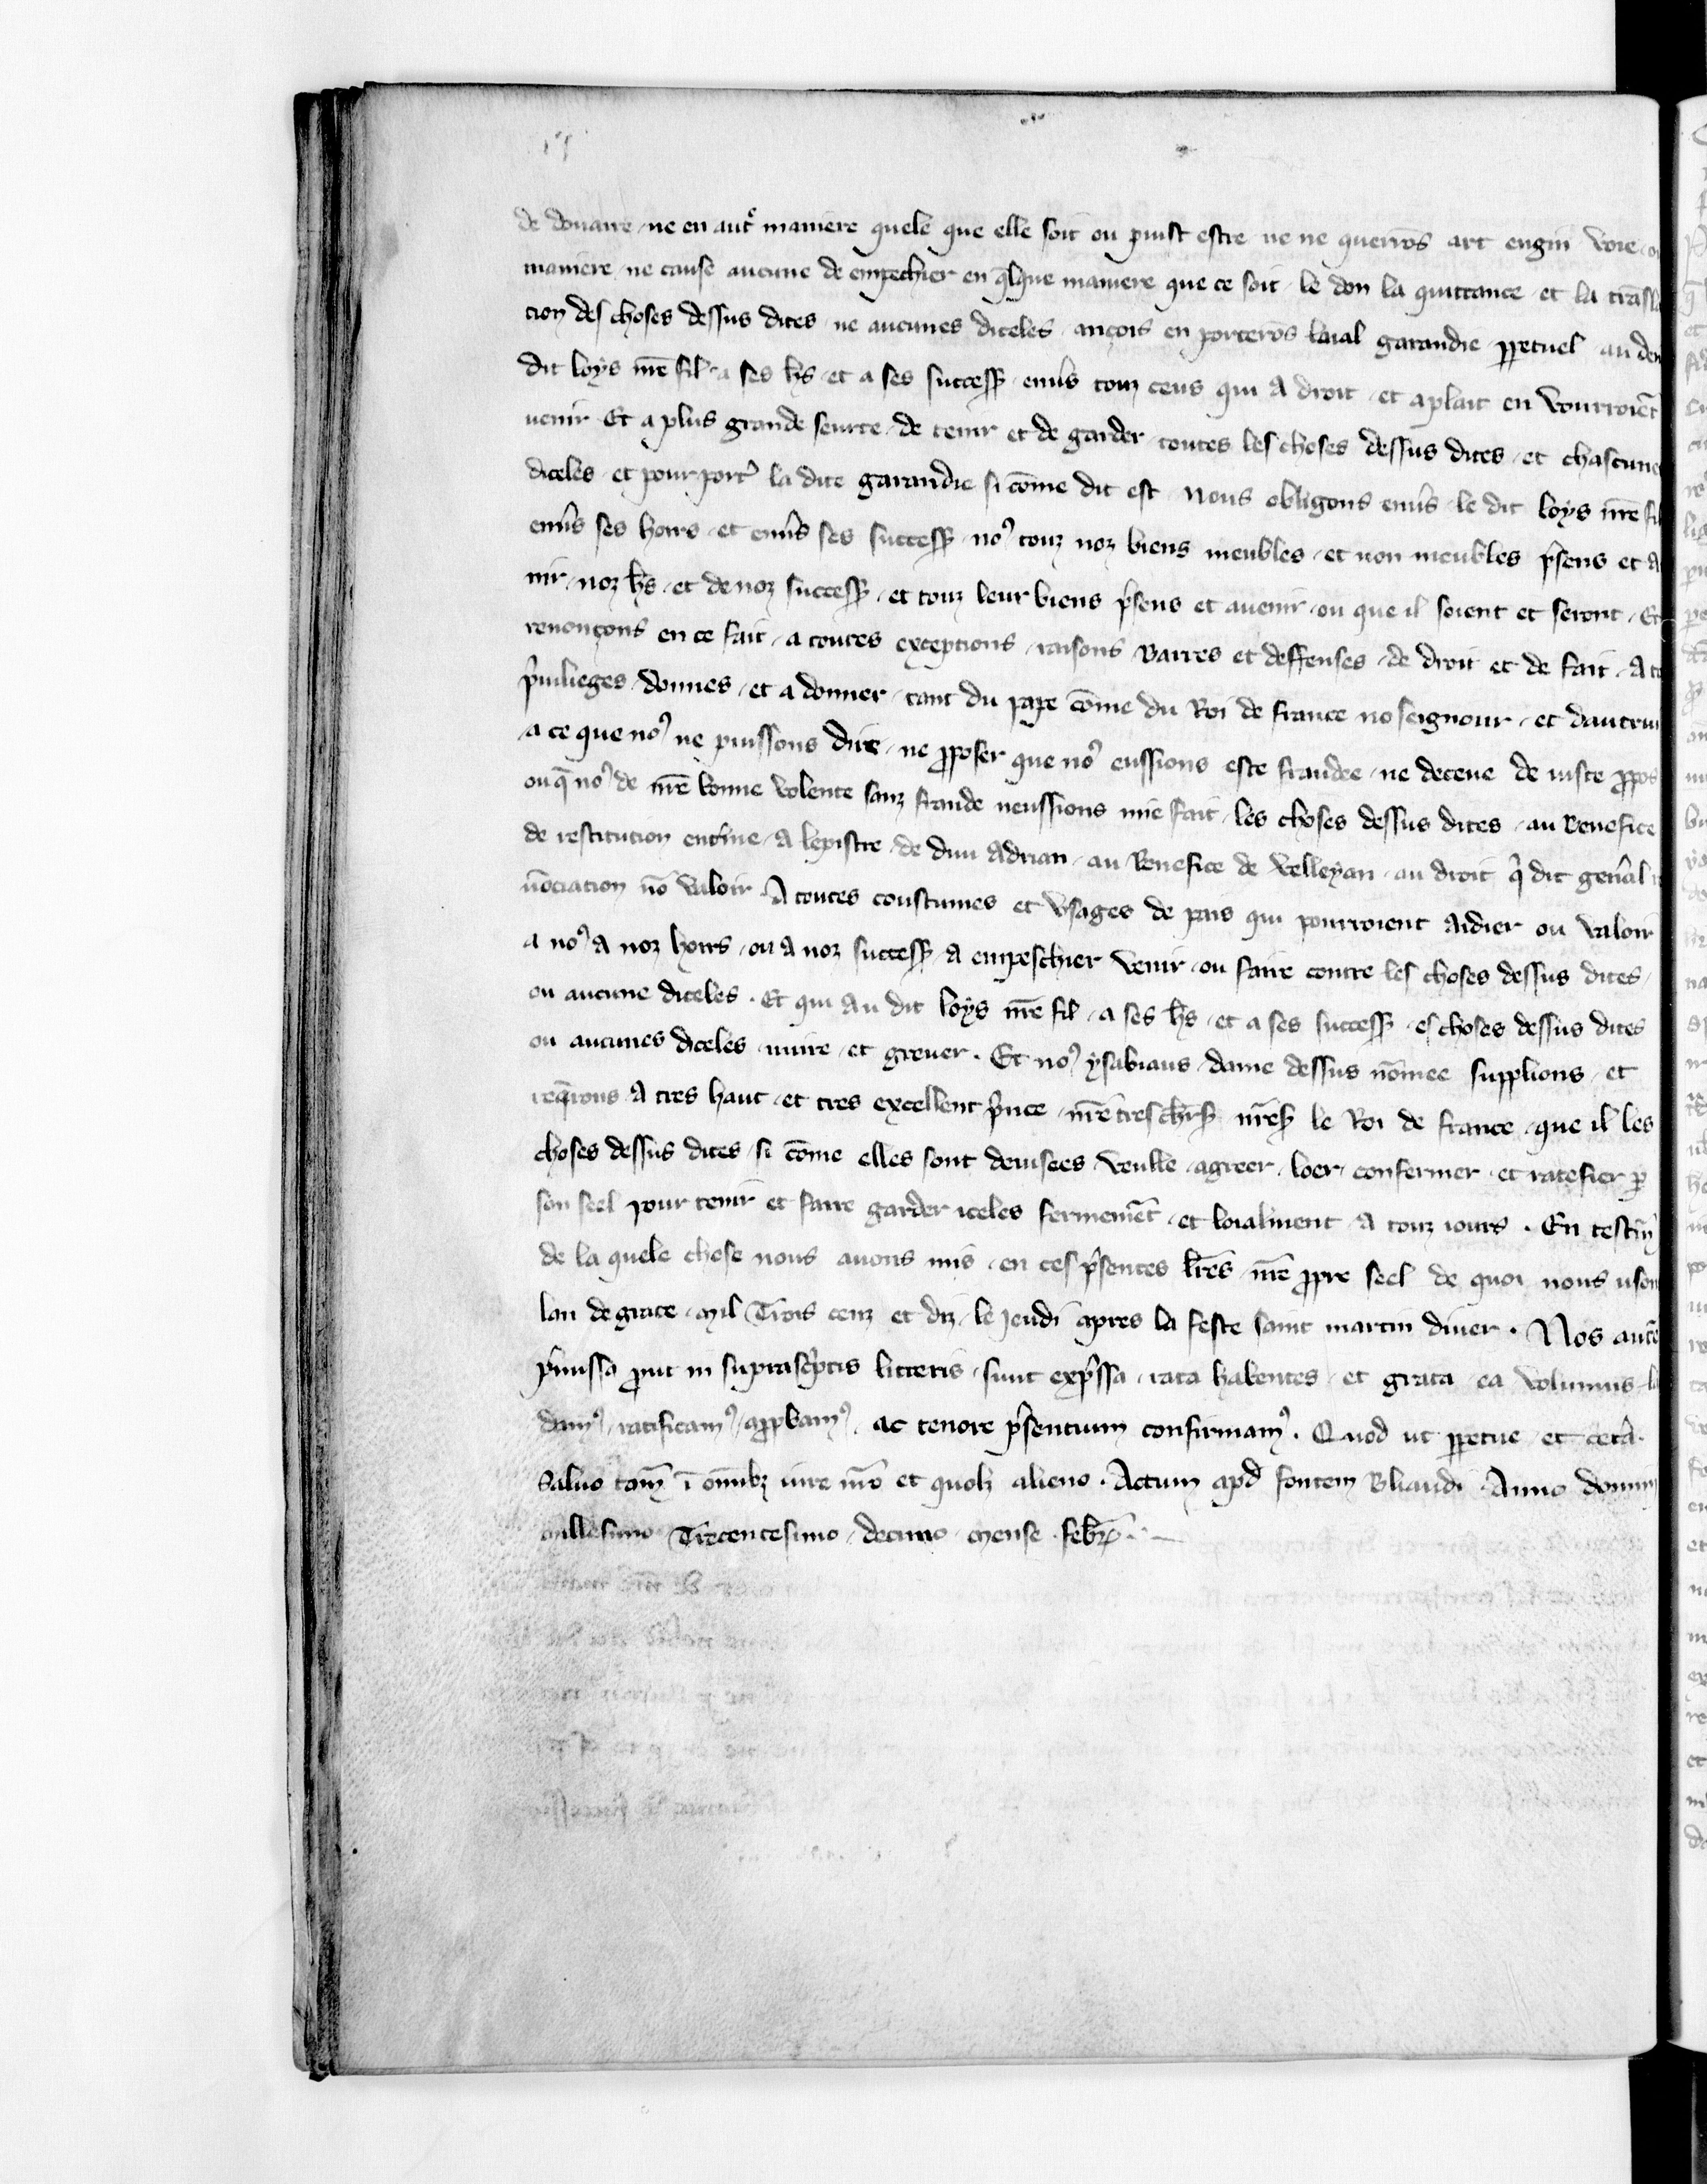 de douaire ne en autͤ maniere quele que elle soit ou puist estre ne ne querrōs art engin voie
maniere ne cause aucune de empechier en q̄lque maniere que ce soit le don la quittance et la trāsla
cion des choses dessus dites ne aucunes diceles ancois en porterōs loial garandie ꝑpetuel au den
dit loys nr̄e fil a ses hs̄ et a ses successꝰ enūs touz ceus qui a droit et a plait en vourroiēt
venir Et a plus grande seurte de tenir et de garder toutes les choses dessus dites et chascune
diceles et pour port̾ la dite garandie si cōme dit est nous obligons enūs le dit loys nr̄e fil
enūs ses hoirs et enūs ses successꝰ noꝰ touz noz biens meubles et non meubles p̄sens et a
nir noz hs̄ et de noz successꝰ et touz leur biens p̄sens et avenir ou que il soient et seront Et
renoncons en ce fait a toutes exceptions raisons barres et deffenses de droit et de fait A to
p̄uilieges donnes et a donner tant du pape cōme du Roi de france no seignour et dautrui
a ce que noꝰ ne puissons dire ne ꝓposer que noꝰ eussions este fraudee ne deceue de iuste ꝓpos
ou q̄ noꝰ de nr̄e bonne volente sanz fraude neussions mie fait les choses dessus dites au benefice
de restitution ent̾ine a lepistre de diui Adrian au benefice de velleyan au droit q̄ dit gen̄al r
nōciation nō valoir A toutes coustumes et vsages de pais qui pourroient aidier ou valoir
a noꝰ a noz hoirs ou a noz successꝰ a empeschier venir ou faire contre les choses dessus dites
ou aucune diceles . Et qui au dit loys nr̄e fil a ses hs̄ et a ses successꝰ es choses dessus dites
ou aucunes diceles nuire et greuer . Et noꝰ ysabiaus dame dessus nōmee supplions et
req̄rons a tres haut et tres excellent p̄nce nr̄e tres chr̄ sꝰ nr̄e sꝰ le Roi de france que il les
choses dessus dites si cōme elles sont deuisees veulle agreer loer confermer et ratefier ꝑ
son seel pour tenir et faire garder iceles fermemēt et loialment a touz iours . En testīn̄
de la quele chose nous auons mis en ces p̄sentes lr̄es nr̄e ꝓpre seel de quoi nous uson
lan de grace mil Trois cenz et diz le Jeudi apres la feste saint martin diuer . Nos autē
p̄missa ꝓut in suprasc̄ptis litteris sunt exp̄ssa rata habentes et grata ea volumus la
damꝰ ratificamꝰ apꝓbamꝰ ac tenore p̄sentium confirmamꝰ . Quod ut ꝑpetue et cet̄a
Saluo tam̄ ī om̄ibꝫ iure nr̄o et quolꝫ alieno . Actum apd̄ fontem Bliaudi Anno domini
millesimo Trecentesimo decimo mense febr̄ .